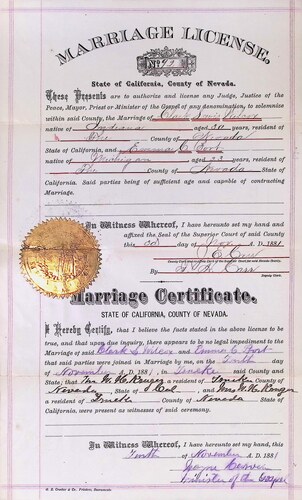 MARRIAGE LICENSE,
State of California, County of Nevada.
These Presents are to authorize and license any Judge, Justice of the
Peace, Mayor, Priest or Minister of the Gospel of any denomination, to solemnize
within said County, the Marriage of Clark Wilcox
native of Indiana aged 30 years, resident of
County of Nevada
State of California, and Emma C. Port
native of Michigan aged 23 years, resident of
The County of Nevada State of
California. Said parties being of sufficient age and capable of contracting
Marriage.
In Witness Whereof, I have hereunto set my hand and
affixed the Seal of the Superior Court of said County
this day of Nov A. D. 1881
By
Deputy Clerk.
Marriage Certificate.
STATE OF CALIFORNIA, COUNTY OF NEVADA.
I Hereby Certify, that I believe the facts stated in the above license to be
true, and that upon due inquiry, there appears to be no legal impediment to the
Marriage of said Clark S. Wilcox and Emma C. Port
that said parties were joined in Marriage by me, on the Tenth
day of November A. D. 1881, in Truckee County and
State; that W. H. Kruger a resident of Truckee County of
Nevada State of Cal, and Mrs W. H. Kruger
a resident of Truckee County of Nevada State of
California, were present as witnesses of said ceremony.
In Witness Whereof, I have hereunto set my hand, this
Tenth day of November A. D. 1881
Minister of the Gospel